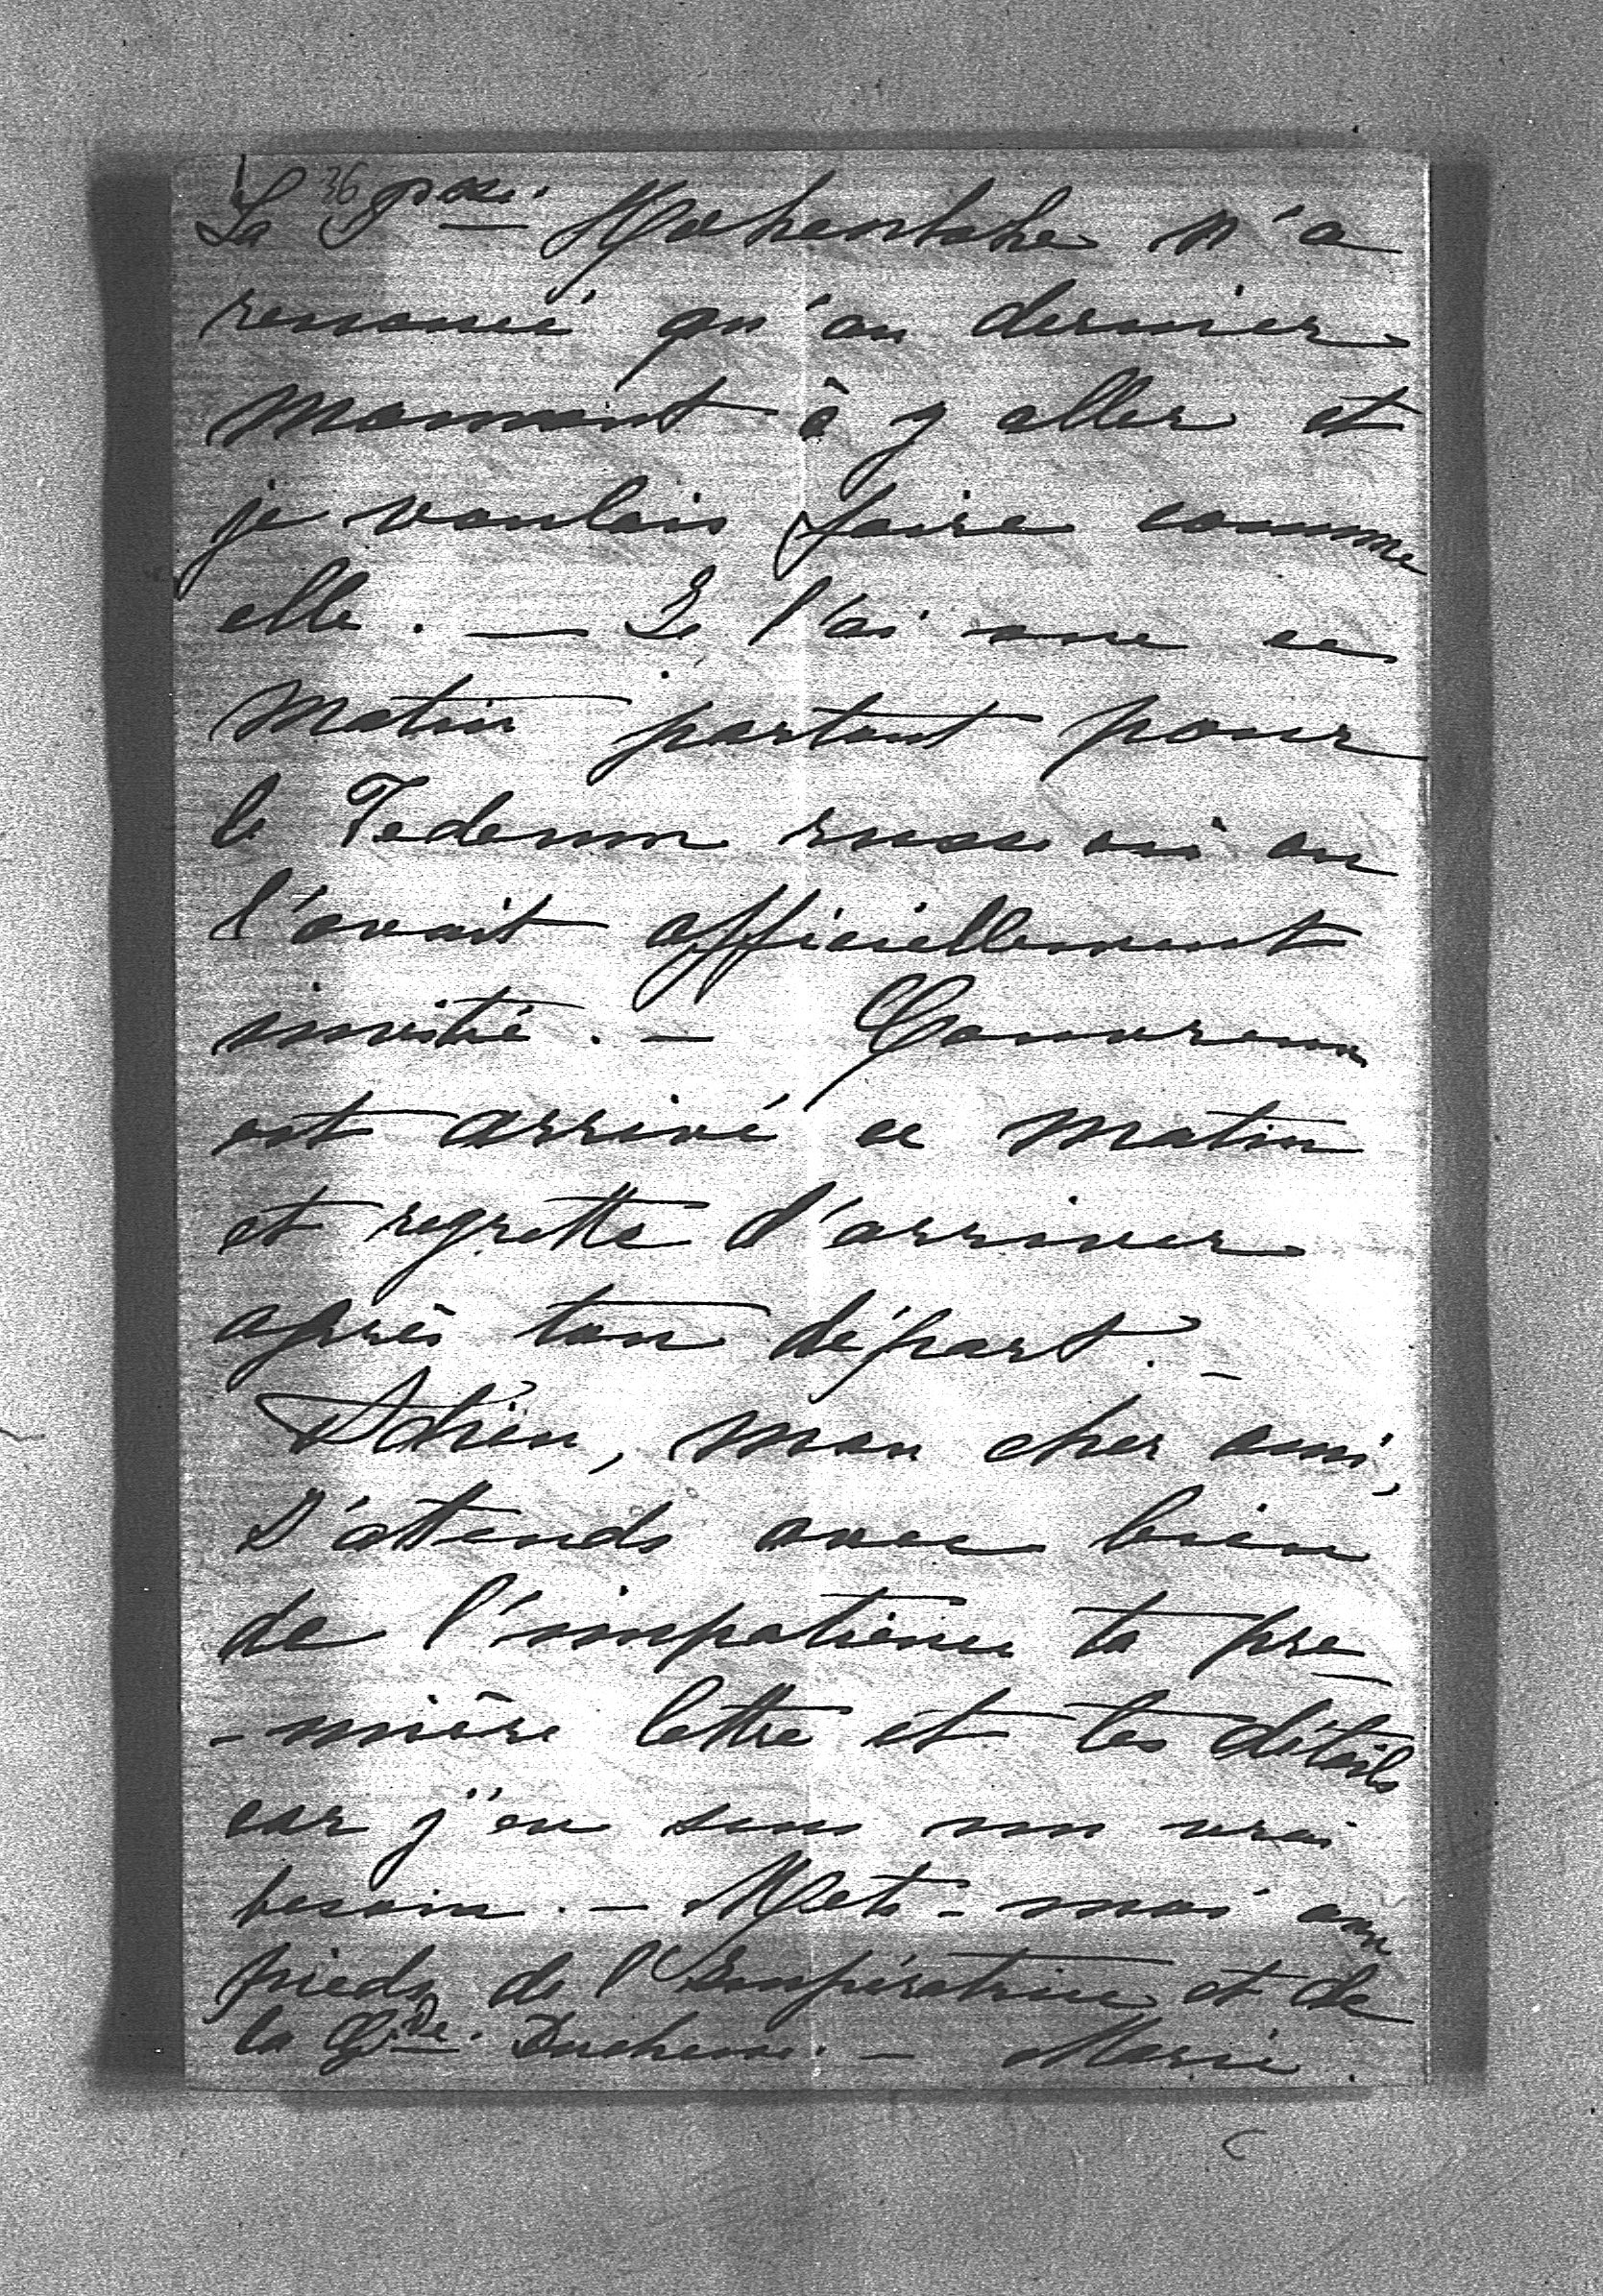 36
La Psse. Hohenlohe n'a
renoncé qu'au dernier
moment à y aller et
je voulais faire comme
elle. — Je l'ai vue ce
matin partant pour
le Tedeum russe où on
l'avait officiellement
invité. — Couvreux
est arrivé ce matin
et regrette d'arriver
après ton départ. —
Adieu, mon cher ami,
J'attends avec bien
de l'impatience ta pre
-mière lettre et tes détails
car j'en sens un vrai
besoin. — Mets-moi aux
pieds de l'Impératrice et de
la Gde. Duchesse. — Marie.